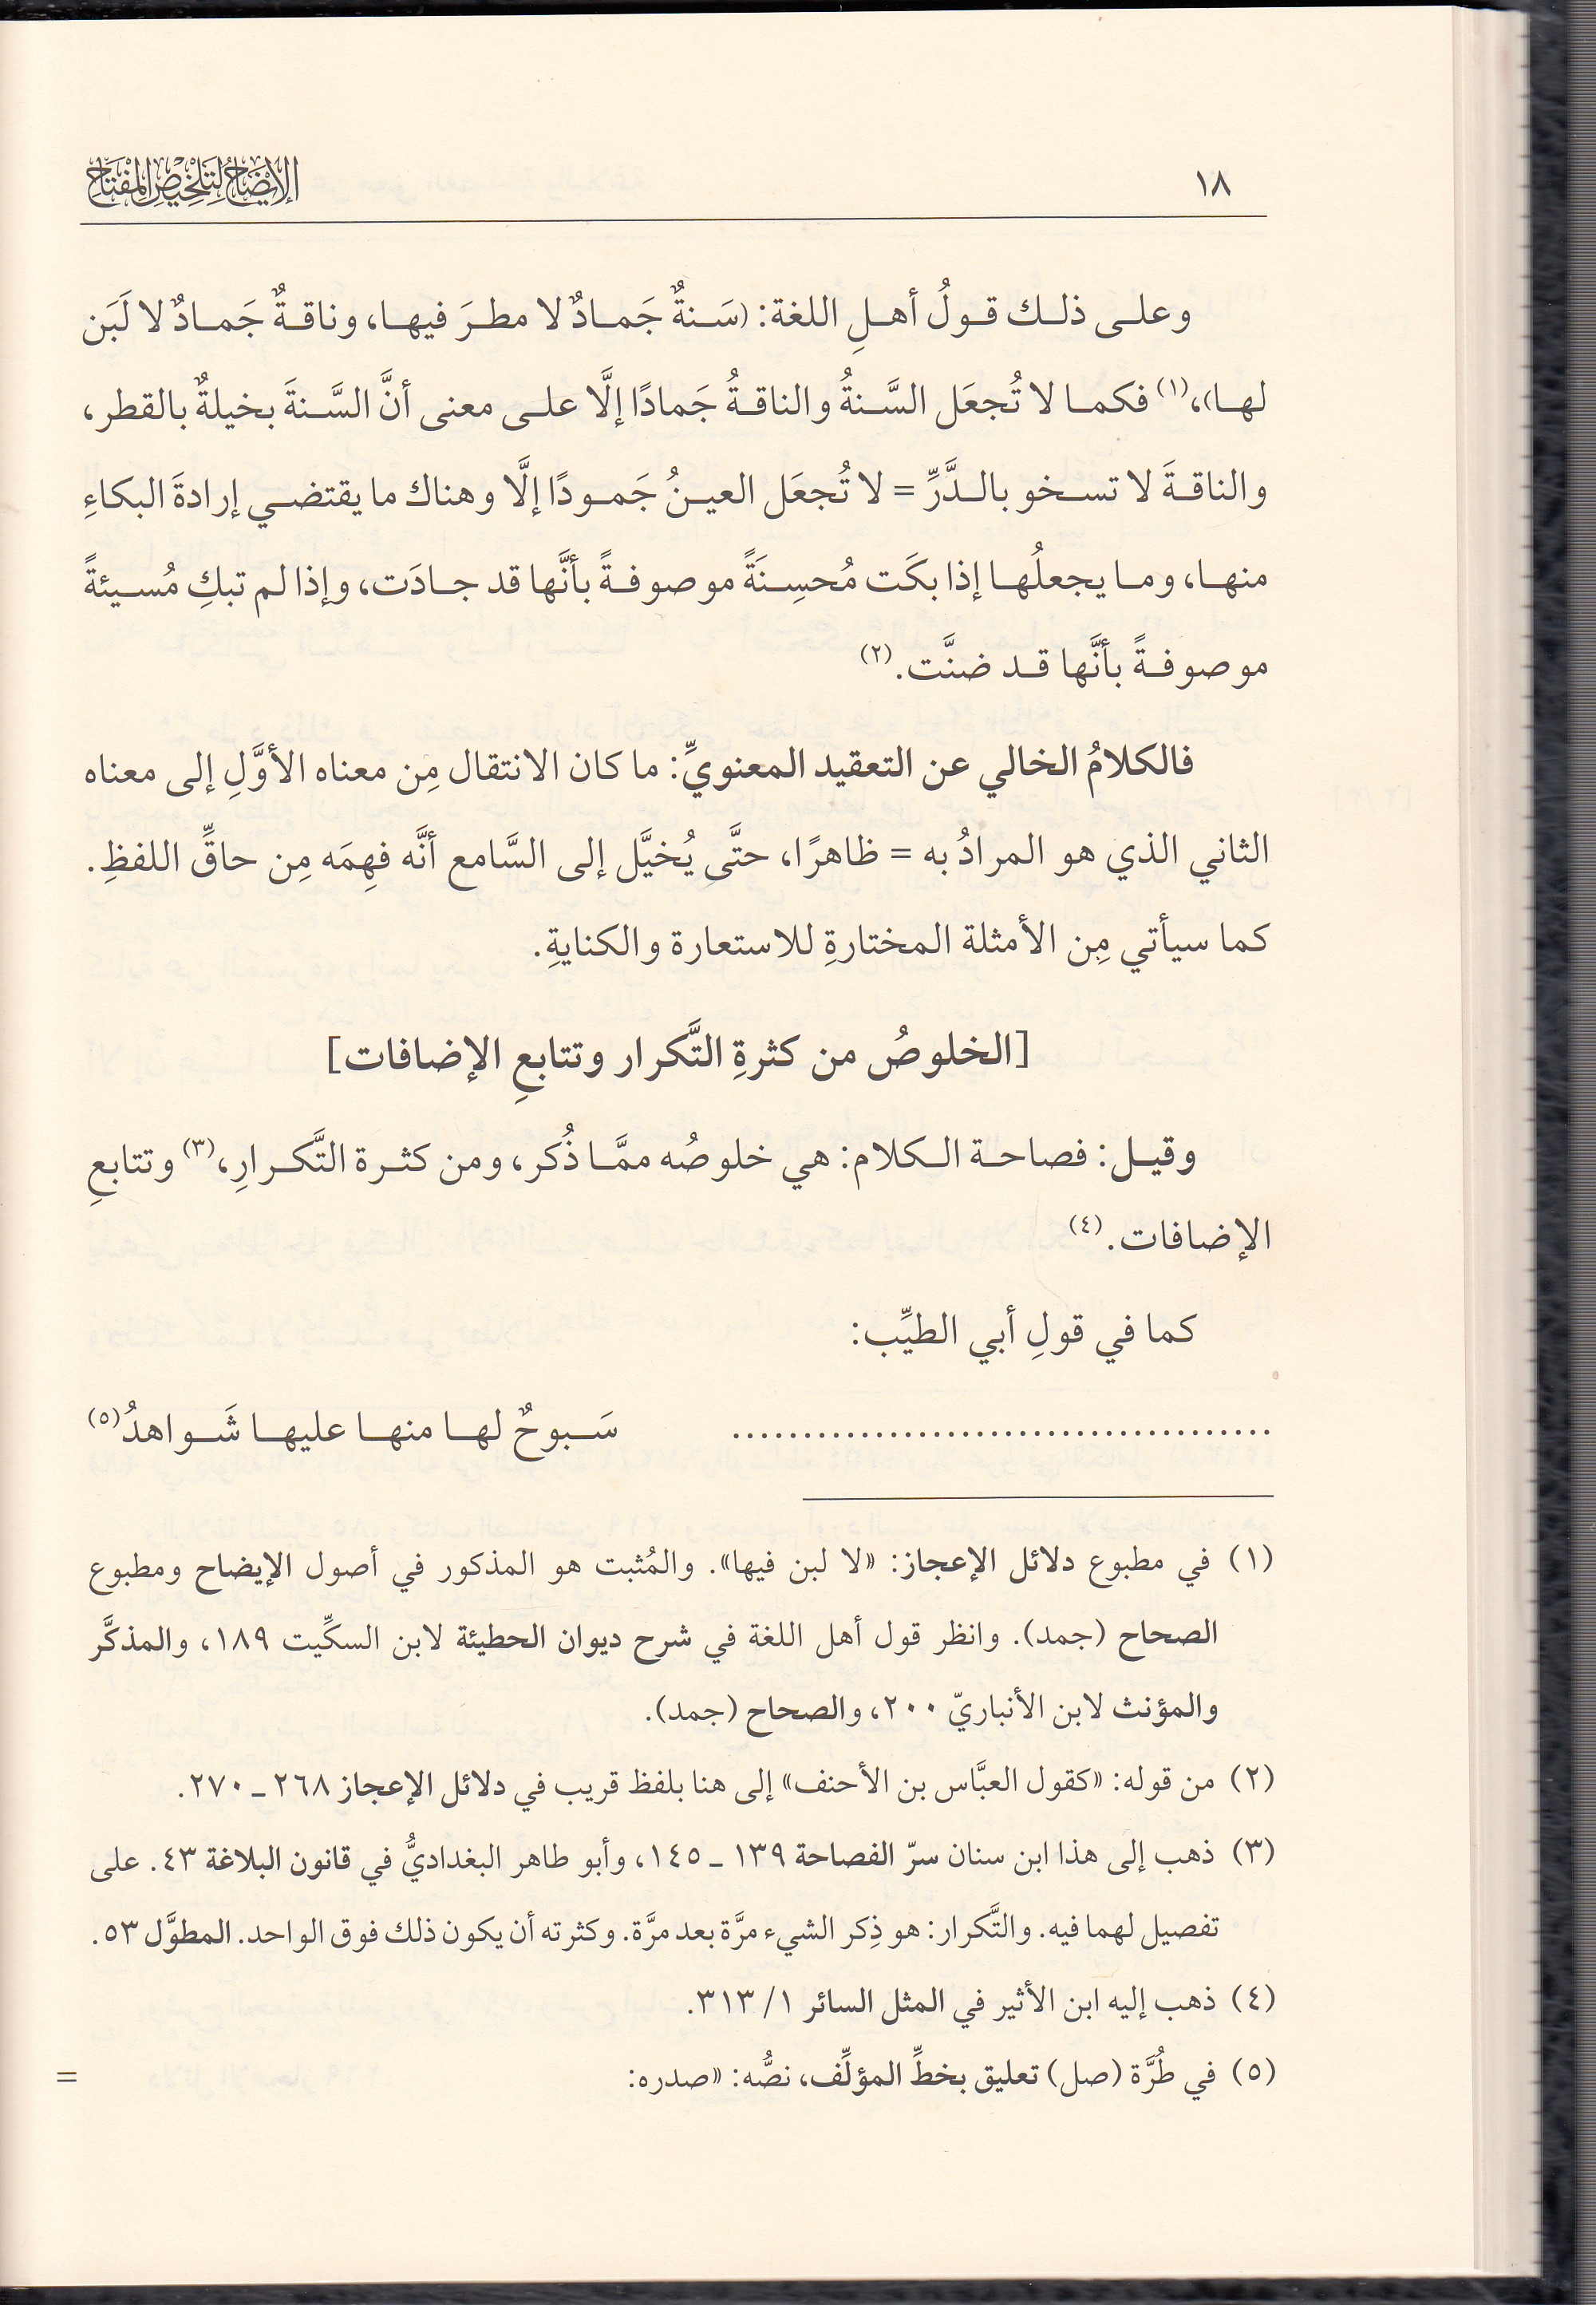 ١٨
الإيضاح لتلخيص المفتاح
وعلى ذلك قولُ أهلِ اللغة: (سَنةٌ جَمادٌ لا مطرَ فيها، وناقةٌ جَمادٌ لا لَبَن
لها)،(١) فكما لا تُجعَل السَّنةُ والناقةُ جَمادًا إلَّا على معنى أنَّ السَّنةَ بخيلةٌ بالقطر،
والناقةَ لا تسخو بالدَّرِّ = لا تُجعَل العينُ جَمودًا إلَّا وهناك ما يقتضي إرادةَ البكاءِ
منها، وما يجعلُها إذا بكَت مُحسِنَةً موصوفةً بأنَّها قد جادَت، وإذا لم تبكِ مُسيئةً
موصوفةً بأنَّها قد ضنَّت.(٢)
فالكلامُ الخالي عن التعقيد المعنويِّ: ما كان الانتقال مِن معناه الأوَّلِ إلى معناه
الثاني الذي هو المرادُ به = ظاهرًا، حتَّى يُخيَّل إلى السَّامع أنَّه فهِمَه مِن حاقِّ اللفظِ.
كما سيأتي مِن الأمثلة المختارةِ للاستعارة والكنايةِ.
[الخلوصُ من كثرةِ التَّكرار وتتابعِ الإضافات]
وقيل: فصاحة الكلام: هي خلوصُه ممَّا ذُكر، ومن كثرة التَّكرارِ،(٣) وتتابعِ
الإضافات.(٤)
كما في قولِ أبي الطيِّب:
...................................... سَبوحٌ لها منها عليها شَواهدُ(٥)
(١) في مطبوع دلائل الإعجاز: «لا لبن فيها». والمُثبت هو المذكور في أصول الإيضاح ومطبوع
الصحاح (جمد). وانظر قول أهل اللغة في شرح ديوان الحطيئة لابن السكِّيت ١٨٩، والمذكَّر
والمؤنث لابن الأنباريّ ٢٠٠، والصحاح (جمد).
(٢) من قوله: «كقول العبَّاس بن الأحنف» إلى هنا بلفظ قريب في دلائل الإعجاز ٢٦٨ ـ ٢٧٠.
(٣) ذهب إلى هذا ابن سنان سرّ الفصاحة ١٣٩ ـ ١٤٥، وأبو طاهر البغداديُّ في قانون البلاغة ٤٣. على
تفصيل لهما فيه. والتَّكرار: هو ذِكر الشيء مرَّة بعد مرَّة. وكثرته أن يكون ذلك فوق الواحد. المطوَّل ٥٣.
(٤) ذهب إليه ابن الأثير في المثل السائر ١/ ٣١٣.
(٥) في طُرَّة (صل) تعليق بخطِّ المؤلِّف، نصُّه: «صدره: =